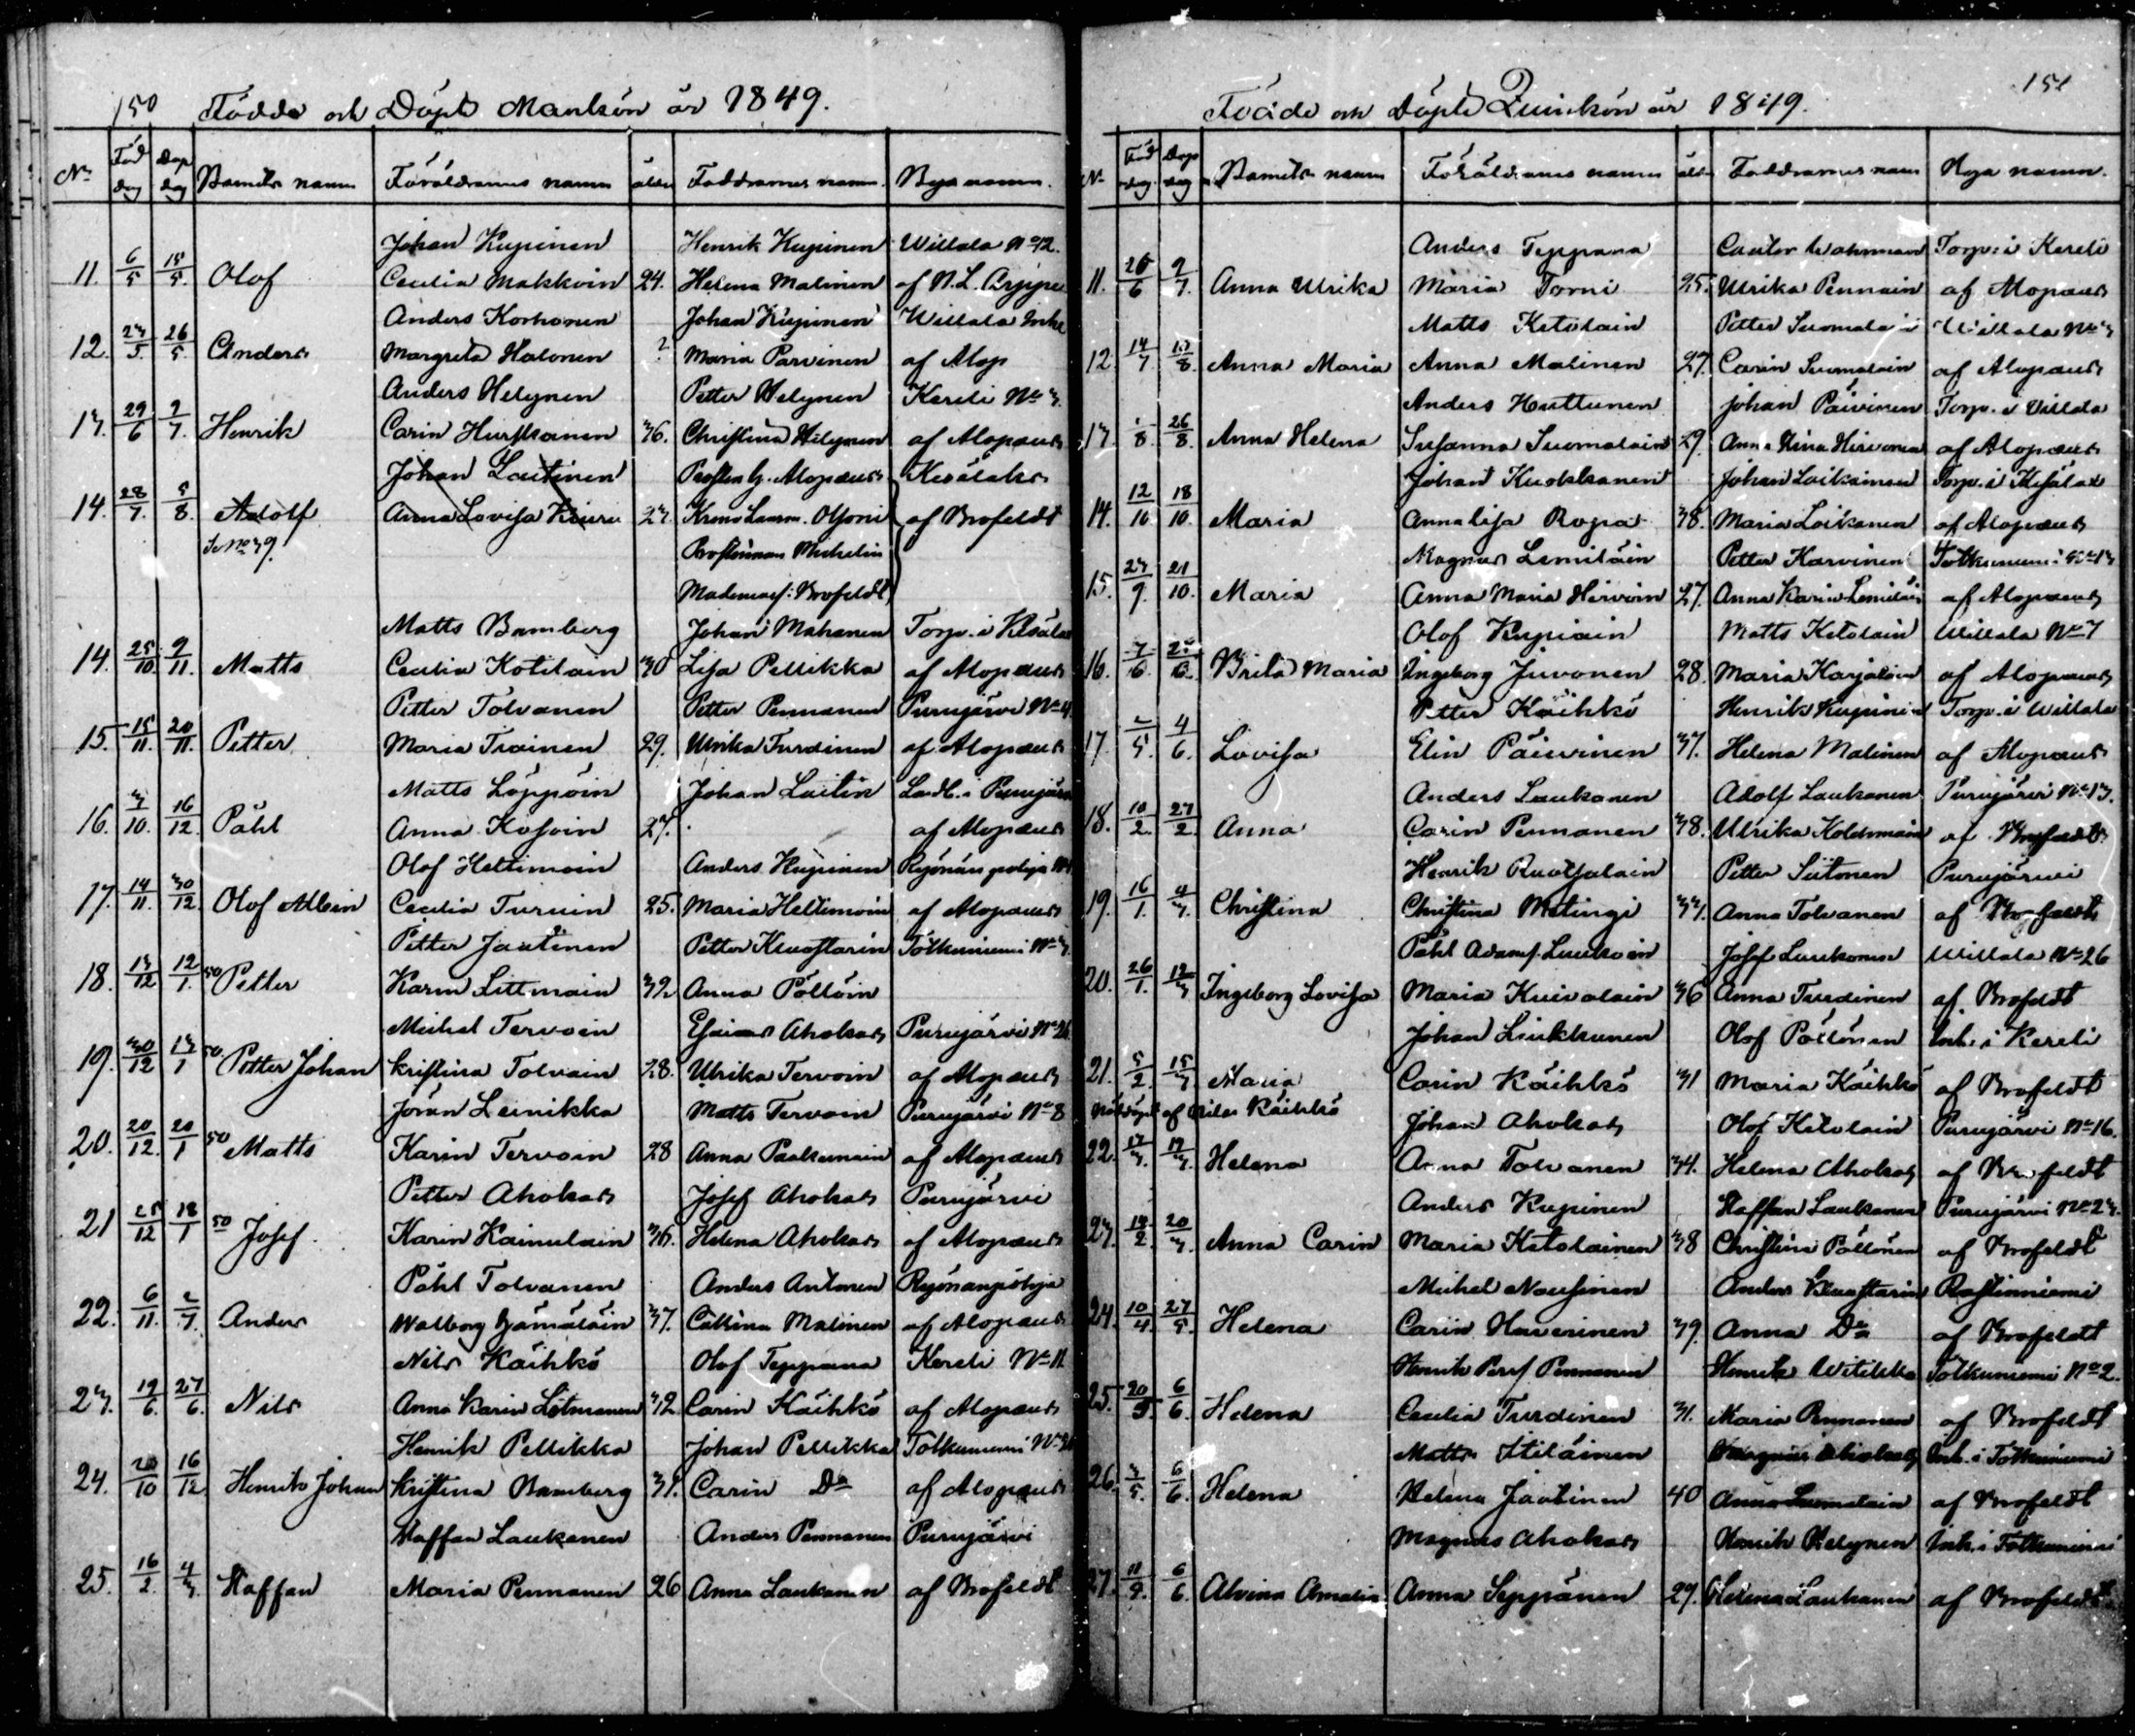 150 Födde och Döpte Mankön år 1849.
No Föd dag Döp dag Barnets namn Föräldrarnes namn ålder Faddrarnes namn. Byns namn.
Johan Kupinen Henrik Kupinen Willala No 12.
11. 6/5 15/5. Olof Cecilia Makkoin 24. Helena Malinen af N. L.
Anders Korhonen Johan Kupinen Willala Inh
12. 23/5. 26/5. Anders Margreta Halonen ? Maria Parvinen af Alop
Anders Helynen Petter Helynen Kereli No 3.
13. 29/6 9/7. Henrik Carin Hurskanen 36. Christina Helynen af Alopæus
Johan Lautinen Prosten G. Alopæus Kesälaks
14. 28/7. 5/8 Adolf Anna Lovisa 23. Krono Länsm. af Brofeldt
Se No 39. Prostinnan Michelin
Mademois: Brofeldt
Matts Bamberg Johan Mahonen Torp. i Kesälax
14. 25/10. 9/11. Matts Cecilia Kotilain 30 Lisa Pellikka af Alopæus
Petter Tolvanen Petter Pennanen Purujärvi No 4
15. 15/11. 20/11. Petter Maria Tiainen 29. Ulrika Turdinen af Alopæus
Matts Löppöin Johan Laitin Ladb. i Purujärvi
16. 3/10. 16/12. Påhl Anna Kosoin 27. af Alopæus
Olof Heltimoin Anders Kupinen
17. 14/11. 30/12. Olof Albin Cecilia Turuin 25. Maria Heltimoin af Alopæus
Petter Jautinen Petter Kuastarin Totkuniemi No 3
18. 13/12 12/1. 50 Petter Karin Littmain 32 Anna Pöllöin
Michel Tervoin Esaias Ahokas Purujärvi No 26
19. 30/12 13/1 50. Petter Johan Kristina Tolvain 28. Ulrika Tervoin af Alopæus
Jöran Leinikka Matts Tervoin Purujärvi No 8
20. 20/12. 20/1 50 Matts Karin Tervoin 28 Anna Paakunain af Alopæus
Petter Ahokas Josef Ahokas Purujärvi
21 25/12 18/1 50 Josef. Karin Kainulain 36. Helena Ahokas af Alopæus
Påhl Tolvanen Anders Antonen
22. 6/11. 2/7. Anders Walborg Hämäläin 37. Cathrina Malinen af Alopæus
Nils Käihkö Olof Teppana Kereli No 11
23. 19/6. 27/6. Nils Anna Karin Lötmanen 32. Carin Käihkö af Alopæus
Henrik Pellikka Johan Pellikka Totkuniemi No
24. 20/10 16/12. Henrik Johan Kristina Bamberg 31. Carin Do af Alopæus
Staffan Laukanen Anders Pennanen Purujärvi
25. 16/2. 4/3. Staffan Maria Pennanen 26 Anna Laukanen af Brofeldt
151
Födde och Döpte Quinkön år 1849.
No Föd dag. Döp dag Barnets namn Föräldrarnes namn åld. Faddrarnes namn Byns namn.
Anders Teppana Cantor Wahrman Torp. i Kereli
11. 25/6 9/7. Anna Ulrika Maria Torni 25. Ulrika Pennain af Alopæus
Matts Ketolain Petter Suomalain Willala No 3
12. 14/7. 12/8. Anna Maria Anna Malinen 27. Carin Suomalain af Alopæus
Anders Huttunen Johan Päivinen Torp. i Villala
13. /8. 26/8. Anna Helena Susanna Suomalain 29. Anna Stina Hirvonen af Alopæus
Johan Kuokkanen Johan Loikainen Torp. i Kesälax
14. 12/10 18/10. Maria Anna Lisa Ropa 38. Maria Loikanen af Alopæus
Magnus Lemiläin Petter Karvinen Totkuniemi No 13
15. 23/9. 21/10. Maria Anna Maria Hirvoin 27. Anna Karin Lemiläin af Alopæus
Olof Kupiain Matts Ketolain Willala No 7
16. /6. 25/6. Brita Maria Ingeborg Juvonen 28. Maria Karjalain af Alopæus
Petter Käihkö Henrik Kupinen Torp. i Willala
17. 2/5. 4/6. Lovisa Elin Päivinen 37. Helena Malinen af Alopæus
Anders Laukanen Adolf Laukanen Purujärvi No 13.
18. 10/2. 27/2. Anna Carin Pennanen 38. Ulrika Koldemain af Brofeldt.
Henrik Ruotsalain Petter Siitonen Purujärvi
19. 16/1. 4/3. Christina Christina Matingi 33. Anna Tolvanen af Brofeldt
Påhl Adams. Laukoin Josef Laukonen Willala No 26
20. 26/1. 12/3 Ingeborg Lovisa Maria Kuivalain 36 Anna Turdinen af Brofeldt
Johan Liukkunen Olof Pöllönen Inh. i Kereli
21. 5/2. 15/3 Maria Carin Käihkö 31 Maria Käihkö af Brofeldt
Nöddöpt af Nils Käihkö Johan Ahokas Olof Ketolain Purujärvi No 16.
22. 12/3. 19/3. Helena Anna Tolvanen 34. Helena Ahokas af Brofeldt
Anders Kupinen Staffan Laukanen Purujärvi No 23.
23. 19/2. 20/3. Anna Carin Maria Ketolainen 38 Christina Pöllönen af Brofeldt
Michel Nousinen Anders Kuastarin Rastinniemi
24. 10/4. 27/5. Helena Carin Haverinen 39. Anna Do af Brofeldt
Henrik Persf Pennanen Henrik Witikka Totkuniemi No 2.
25. 20/5. 6/6. Helena Cecilia Turdinen 31. Maria Pennanen af Brofeldt
Matts Itiläinen Magnus Ahokas Inh. i Totkuniemi
26. 3/5. 6/6. Helena Helena Jautinen 40 Anna Suomalain af Brofeldt
Magnus Ahokas Henrik Helynen Inh. i Totkuniemi
27. 11/4. 6/6. Alvina Amalia Anna Seppänen 29. Helena Laukanen af Brofeldt